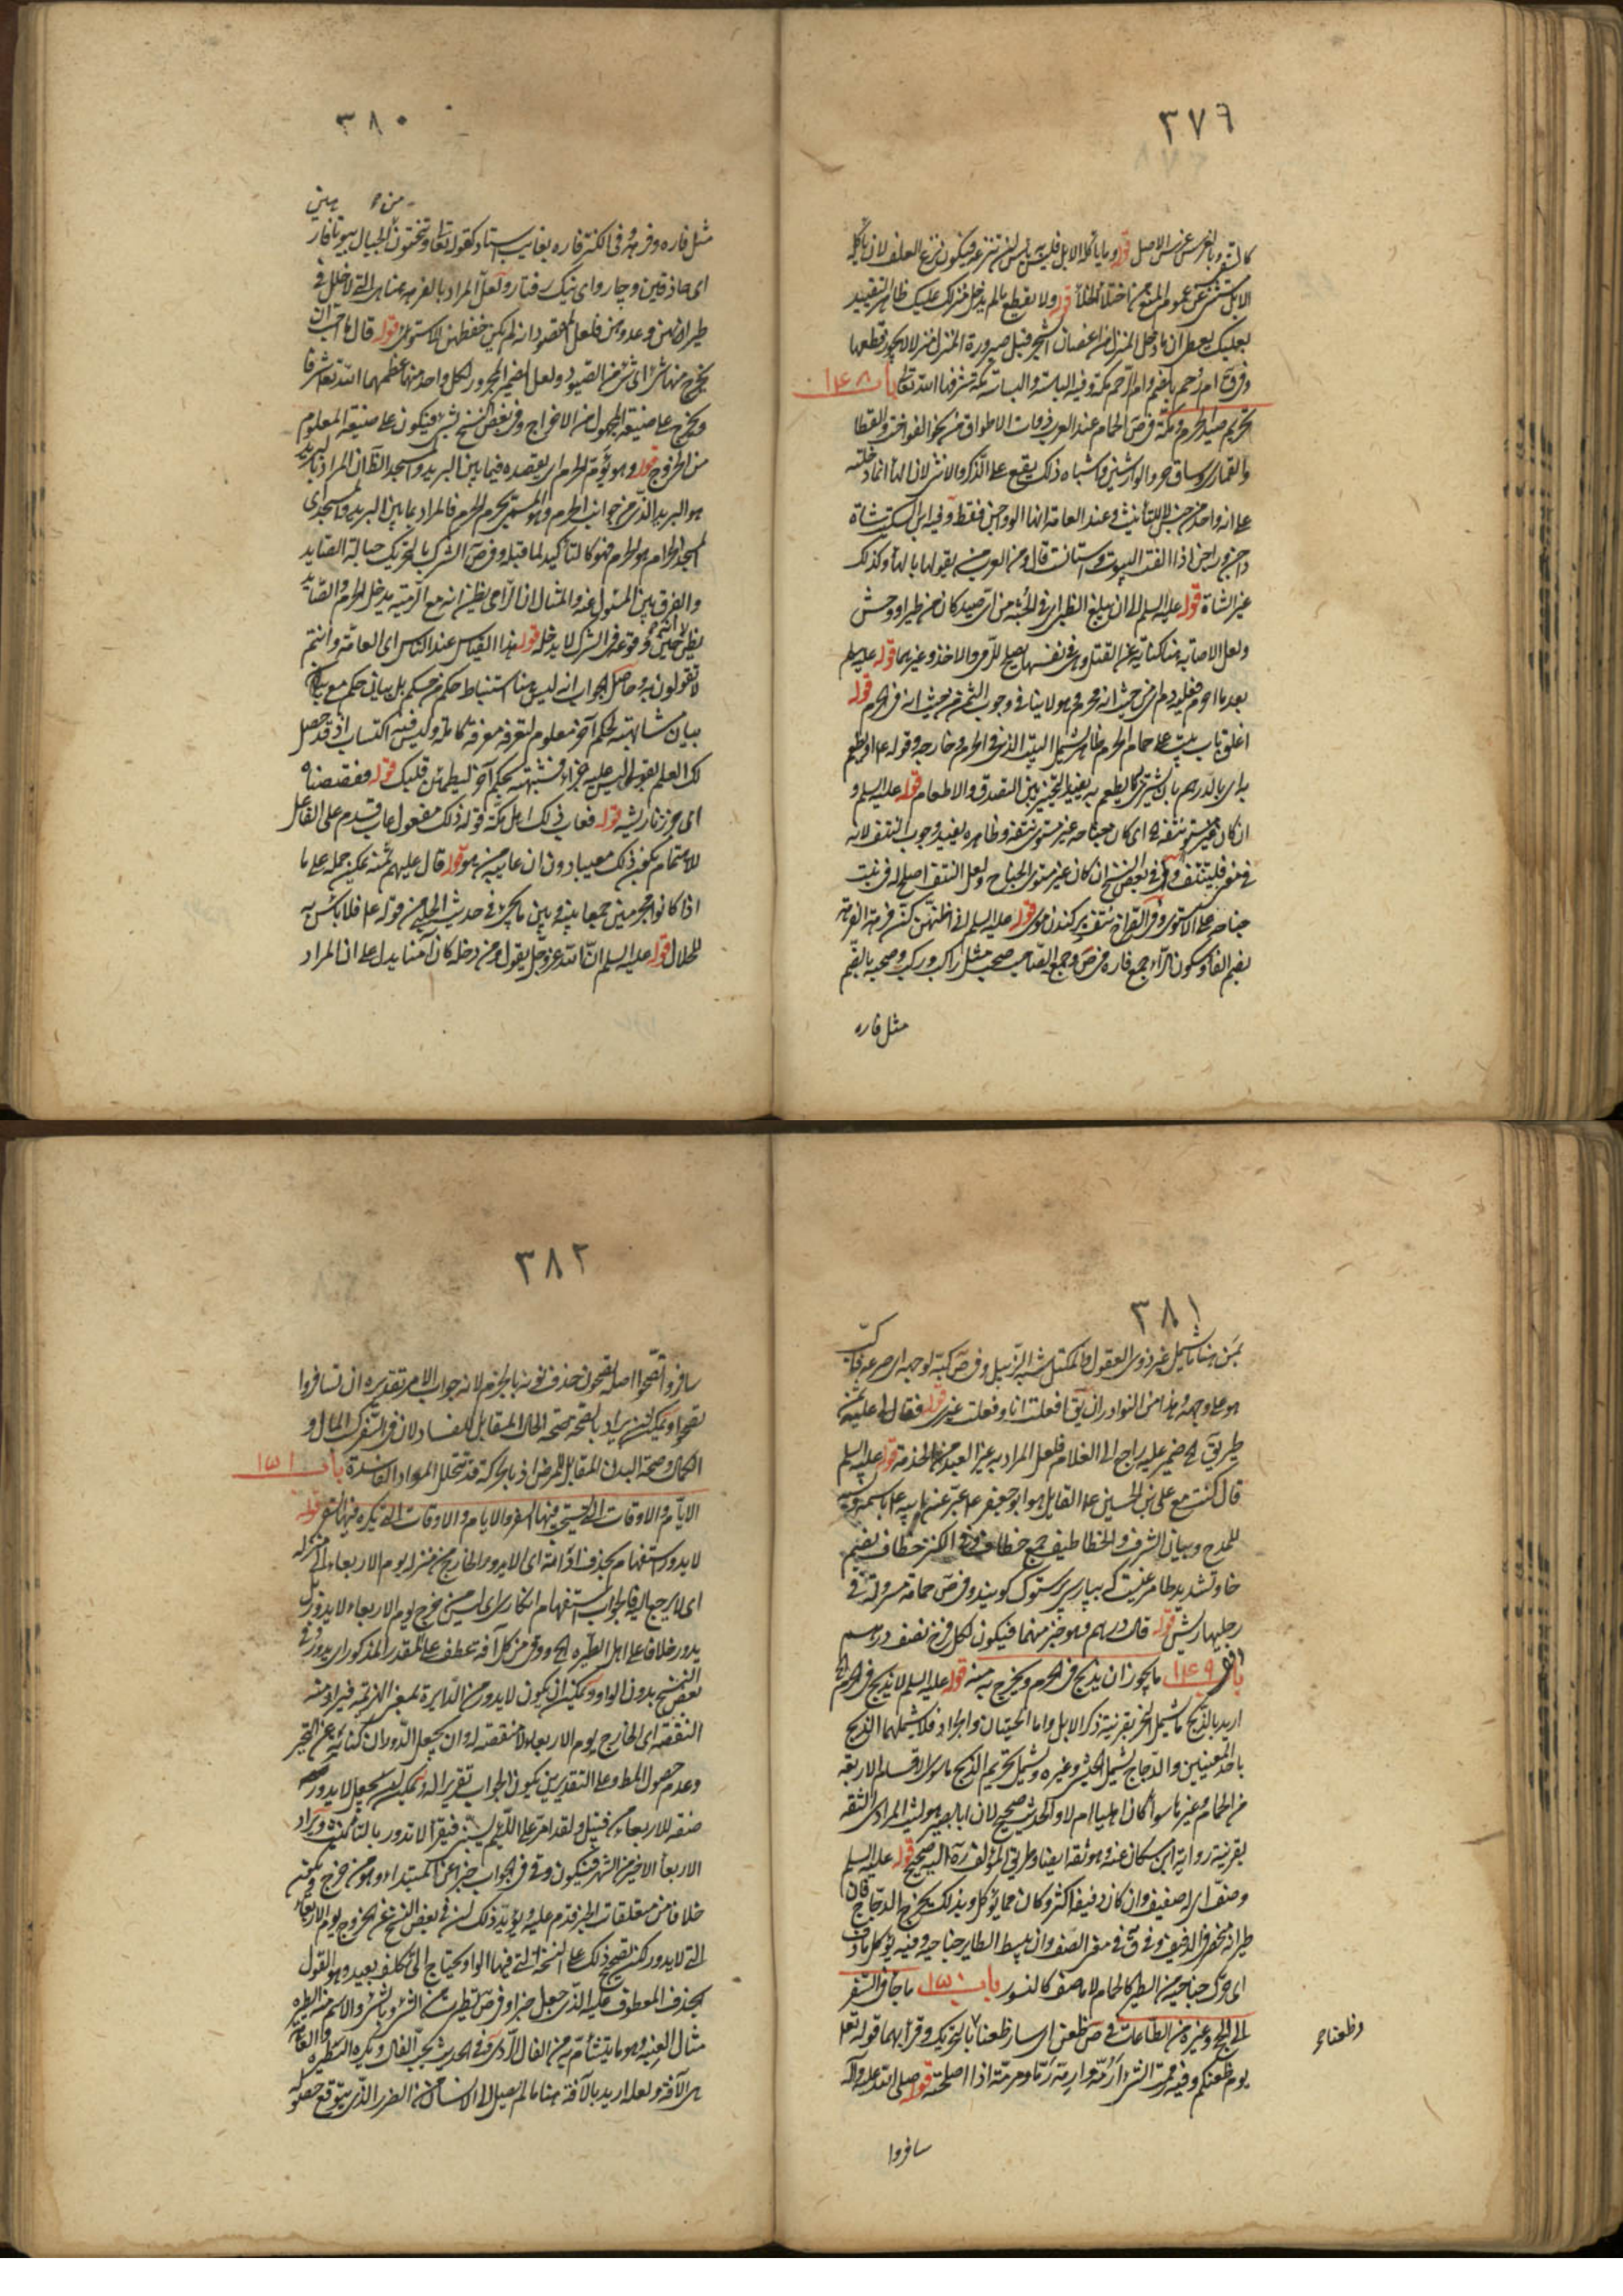 ٣٧٦
قوله وما يأكله الابل فليس به بأس ان تنزعه فيكون نزع العلف لان يأكله
الابل مستثنى عن عموم المنع من اختلاء الخلا قوله ولا يقطع ما لم يدخل منزلك عليك ظاهر التقييد
بعليك يعطى ان ما دخل المنزل من اغصان الشجر قبل صيرورة المنزل منزلا لا يجوز قطعها
وام الرحم مكة وفيه الباسة والبساسة مكة شرفها الله تعالى باب ١٤٨
تحريم صيد الحرم ومكة في ص الحمام عند العرب ذوات الاطواق من نحو الفواخت والقطا
والقمارى وساق حر والوراشين واشباه ذلك يقع على الذكر والانثى لان الهاء انما دخلته
على انه واحد من جنس لا للتأنيث وعند العامة انها الدواجن فقط وفيه ابن السكيت شاة
داجن وراجن اذا الفت البيوت واستانست قال ومن العرب من يقولها بالهاء وكذلك
غير الشاة قوله عليه السلم الا ان يبلغ الظبى في الجثة من الصيد كان من طير او وحش
ولعل الاصابة هنا كناية عن القتل وهى في نفسها يصلح للرمى والاخذ وغيرهما قوله عليه السلم
بعد ما احرم فعليه دم من حيث انه محرم وهو لا ينافى وجوب الثمن من حيث انه في الحرم قوله
اغلق باب بيت على حمام الحرم ظاهره يشمل البيت الذى في الحرم وخارجه وقوله ع او يطعم
به اى بالدرهم بان يشترى ما يطعم به يفيد التخيير بين التصدق والاطعام قوله عليه السلم و
ان كان غير مستو نتفه اى كان جناحه غير مستوى نتفه وظاهره يفيد وجوب النتف لانه
في بعض النسخ ان كان غير مستوى الجناح ولعل النتف اصلح له فينبت
جناحه على الاستوى وفى القراح نتف پركندن موى قوله عليه السلم انى اظنهن كن فرهة الفرهة
بضم الفاء وسكون الراء جمع فاره في ص وجمع الصاحب صحب مثل راكب وركب وصحبة بالضم
مثل فاره
٣٨٠
من ينحتون
مثل فاره وفرهة وفى الكنز فاره بغايت استاد كقوله تعالى وتنحتون من الجبال بيوتا فارهين
اى حاذقين وچارواى نيك رفتار ولعل المراد بالفرهة هنا هى التى لا خلل في
طيرانهن وعدوهن فلعل المقصود انه لم يكن حفظهن الا ستون قوله قال ما احب ان
يخرج منها شئ اى شئ من الصيود ولعل الضمير المجرور لكل واحد منهما عظمهما الله تعالى شرفا
ويخرج على صيغة المجهول من الاخراج وفى بعض النسخ بشئ فيكون على صيغة المعلوم
من الخروج قوله وهو يؤم الحرم اى يقصده فيما بين البريد والمسجد الظاهر ان المراد بالبريد
هو البريد الذى من جوانب الحرم وهو المسمى بحرم الحرم فالمراد بما بين البريد والمسجد اى
المسجد الحرام هو الحرم فهو كالتأكيد لما قبله وفى ص الشرك بالتحريك حبالة الصايد
والفرق بين المسئول عنه والمثال ان الرامى يظن انه مع الرمية يدخل الحرم والصايد
يظن حين وقوعه في الشرك لا يدخله قوله هذا القياس عند الناس اى العامة وانتم
لا تقولون به وحاصل الجواب انه ليس هنا استنباط حكم من حكم بل بيان حكم مع
بيان مشابهته لحكم آخر معلوم لتعرفه معرفة كاملة وليس فيه اكتساب اذ قد حصل
لك العلم بقولى ليس عليه جزاء وشبهته بحكم آخر ليطمئن قلبك قوله فقصصناه
اى جززنا ريشه قوله فعاب ذلك اهل مكة قوله ذلك مفعول عاب قدم على الفاعل
للاهتمام بكون ذلك معيبا دون ان عايبه من هو قوله قال عليهم ثمنه يمكن حمله على ما
اذا كانوا محرمين جمعا بينه وبين ما يجئ في حديث الحلبى من قوله ع فلا بأس به
للحلال قوله عليه السلم ان الله عز وجل يقول ومن دخله كان آمنا يدل على ان المراد
٣٨١
بمن هنا ما يشمل غير ذوى العقول والمكتل شبه الزبيل وفى ص كبه لوجهه اى صرعه فاكب
هو على وجهه وهذا من النوادر ان يق افعلت انا وفعلت غيرى قوله فقال لى عليه ثمن
طريق ضمير عليه راجع الى الغلام فلعل المراد به غير العبد من الخدمة قوله عليه السلم
قال كنت مع على بن الحسين ع القايل هو ابو جعفر ع عبر عن ابيه ع باسمه
للمدح وبيان الشرف والخطاطيف جمع خطاف وفى الكنز خطاف بضم
خاء وتشديد طا مرغيست كه بپارسى پرستوك كويند وفى ص حمامة مسرولة في
رجليها ريش قوله قال درهم وهو خبر منهما فيكون لكل فرخ نصف درهم
باب ١٤٩ ما يجوز ان يذبح في الحرم ويخرج به منه قوله عليه السلم لا يذبح في الحرم الخ
اريد بالذبح ما يشمل النحر بقرينة ذكر الابل واما الحيتان والجراد فلا يشملهما الذبح
باحد المعنيين والدجاج يشمل الحبشى وغيره ويشمل تحريم الذبح ما سوى الاقسام الاربعة
من الحمام وغيره سواء كان اهليا ام لا والحديث صحيح لان ابا بصير هو ليث المرادى الثقة
بقرينة رواية ابن مسكان عنه وهو ثقة ايضا وطريق المؤلف ره اليه صحيح قوله عليه السلم
وصف اى له صفيف وان كان دفيفه اكثر وكان مما يؤكل وبذلك يخرج الدجاج فان
طيرانه منحصر في الدفيف وفى ق في معنى الصف وان يبسط الطاير جناحيه وفيه يؤكل ما دف
اى حرك جناحيه من الطير كالحمام لا ما صف كالنسور باب ١٥٠ ما جاء في السفر
الى الحج وغيره من الطاعات في ص ظعن اى سار ظعنا بالتحريك وقرأ بهما قوله تعالى
يوم ظعنكم وفيه رممت الشئ ارمه وارمه رما ومرمة اذا اصلحته قوله صلى الله عليه وآله
وظعنا ح
سافروا
٣٨٢
سافروا تصحوا اصله تصحون حذف نونه بالجزم لانه جواب الامر تقديره ان تسافروا
تصحوا ويمكن ان يراد بالصحة صحة الحال المقابل للفساد لان في السفر كسب المال و
الكمال وصحة البدن المقابل للمرض اذ بالحركة قد تتحلل المواد الفاسدة باب ١٥١
الايام والاوقات التى يستحب فيها السفر والايام والاوقات التى يكره فيها السفر قوله
لا يدور استفهام بحذف اداته اى الا يدور الخارج من منزله يوم الاربعاء الى منزله
اى لا يرجع اليه فالجواب استفهام انكارى اى ليس من خرج يوم الاربعاء لا يدور بل
يدور خلافا على اهل الطيرة الخ ووقى من كل آفة عطف على المقدر المذكور اى يدور وفى
بعض النسخ بدون الواو ويمكن ان يكون لا يدور من الدايرة بمعنى الهزيمة
النفقة اى الخارج يوم الاربعاء لا منفقة له وان يجعل الدوران كناية عن التحير
وعدم حصول المط وعلى التقديرين يكون الجواب تقريرا له ويمكن ان يجعل لا يدور
صفة للاربعاء من قبيل ولقد امر على اللئيم يسبنى فيقرأ لا تدور بالتأنيث ويراد
الاربعاء الاخير من الشهر فيكون وقى في الجواب خبرا عن المبتداء وهو من خرج ويكون
خلافا من متعلقات الخبر قدم عليه ويؤيد ذلك ان في بعض النسخ عن الخروج يوم الاربعاء
التى لا يدور لكن تصحيح ذلك على النسخة التى فيها الواو يحتاج الى تكلف بعيد وهو القول
بحذف المعطوف عليه الذى جعل خبرا وفى ص تطيرت من الشئ وبالشئ والاسم منه الطيرة
مثال العنبة وهو ما يتشأم به من الفال الردى وفى الحديث يحب الفال ويكره الطيرة والعاهة
هى الآفة ولعله اريد بالآفة هنا ما لم يصل الى الانسان من الضرر الذى يتوقع حصوله